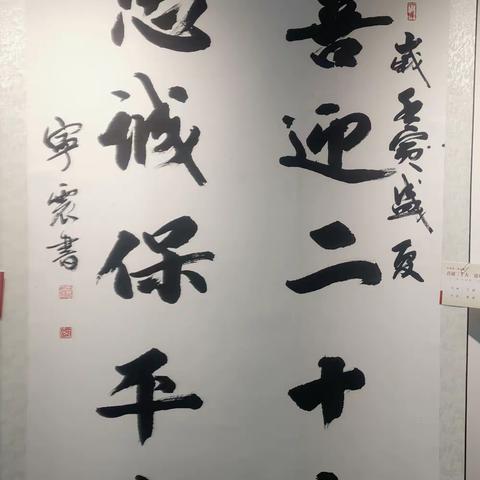 歲壬寅盛夏
喜迎二十
忠诚保平
寧震書